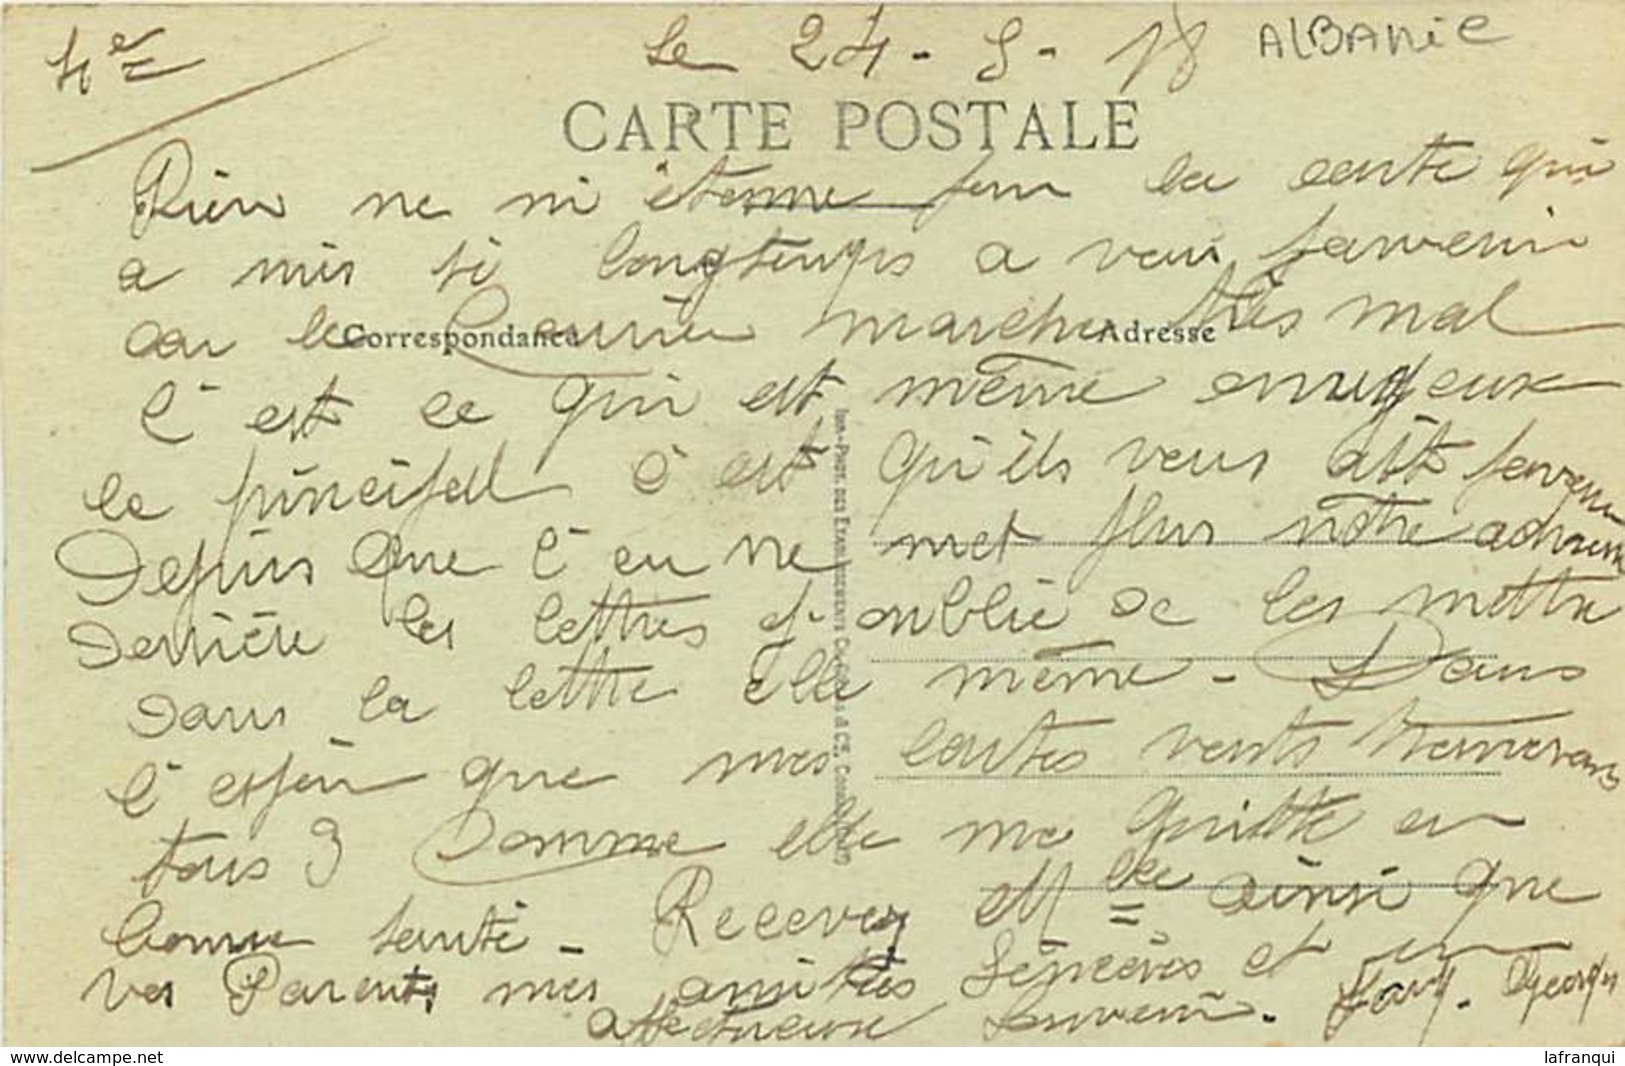 Le 24-5-18 ALBANiE
CARTE POSTALE
Rien ne m'étonne sur la carte qui
a mis si longtemps a vous parvenir
car le Courrier marche très mal
Correspondance Adresse
C'est ce qui est même ennuyeux
le principall c'est qu'ils vous ait parvenu
Depuis que l'on ne met plus nôtre adresse
derrière les lettres j'oublie de les mettre
dans la lettre elle même - Dans
l'espoir que mes cartes vous
tous 3 comme elle me quitte en
bonne santé - Recevez Mlle ainsi que
vos Parents mes amitiés sincères et un
affectueux souvenir. Georges
www.delcampe.net
lafranqui